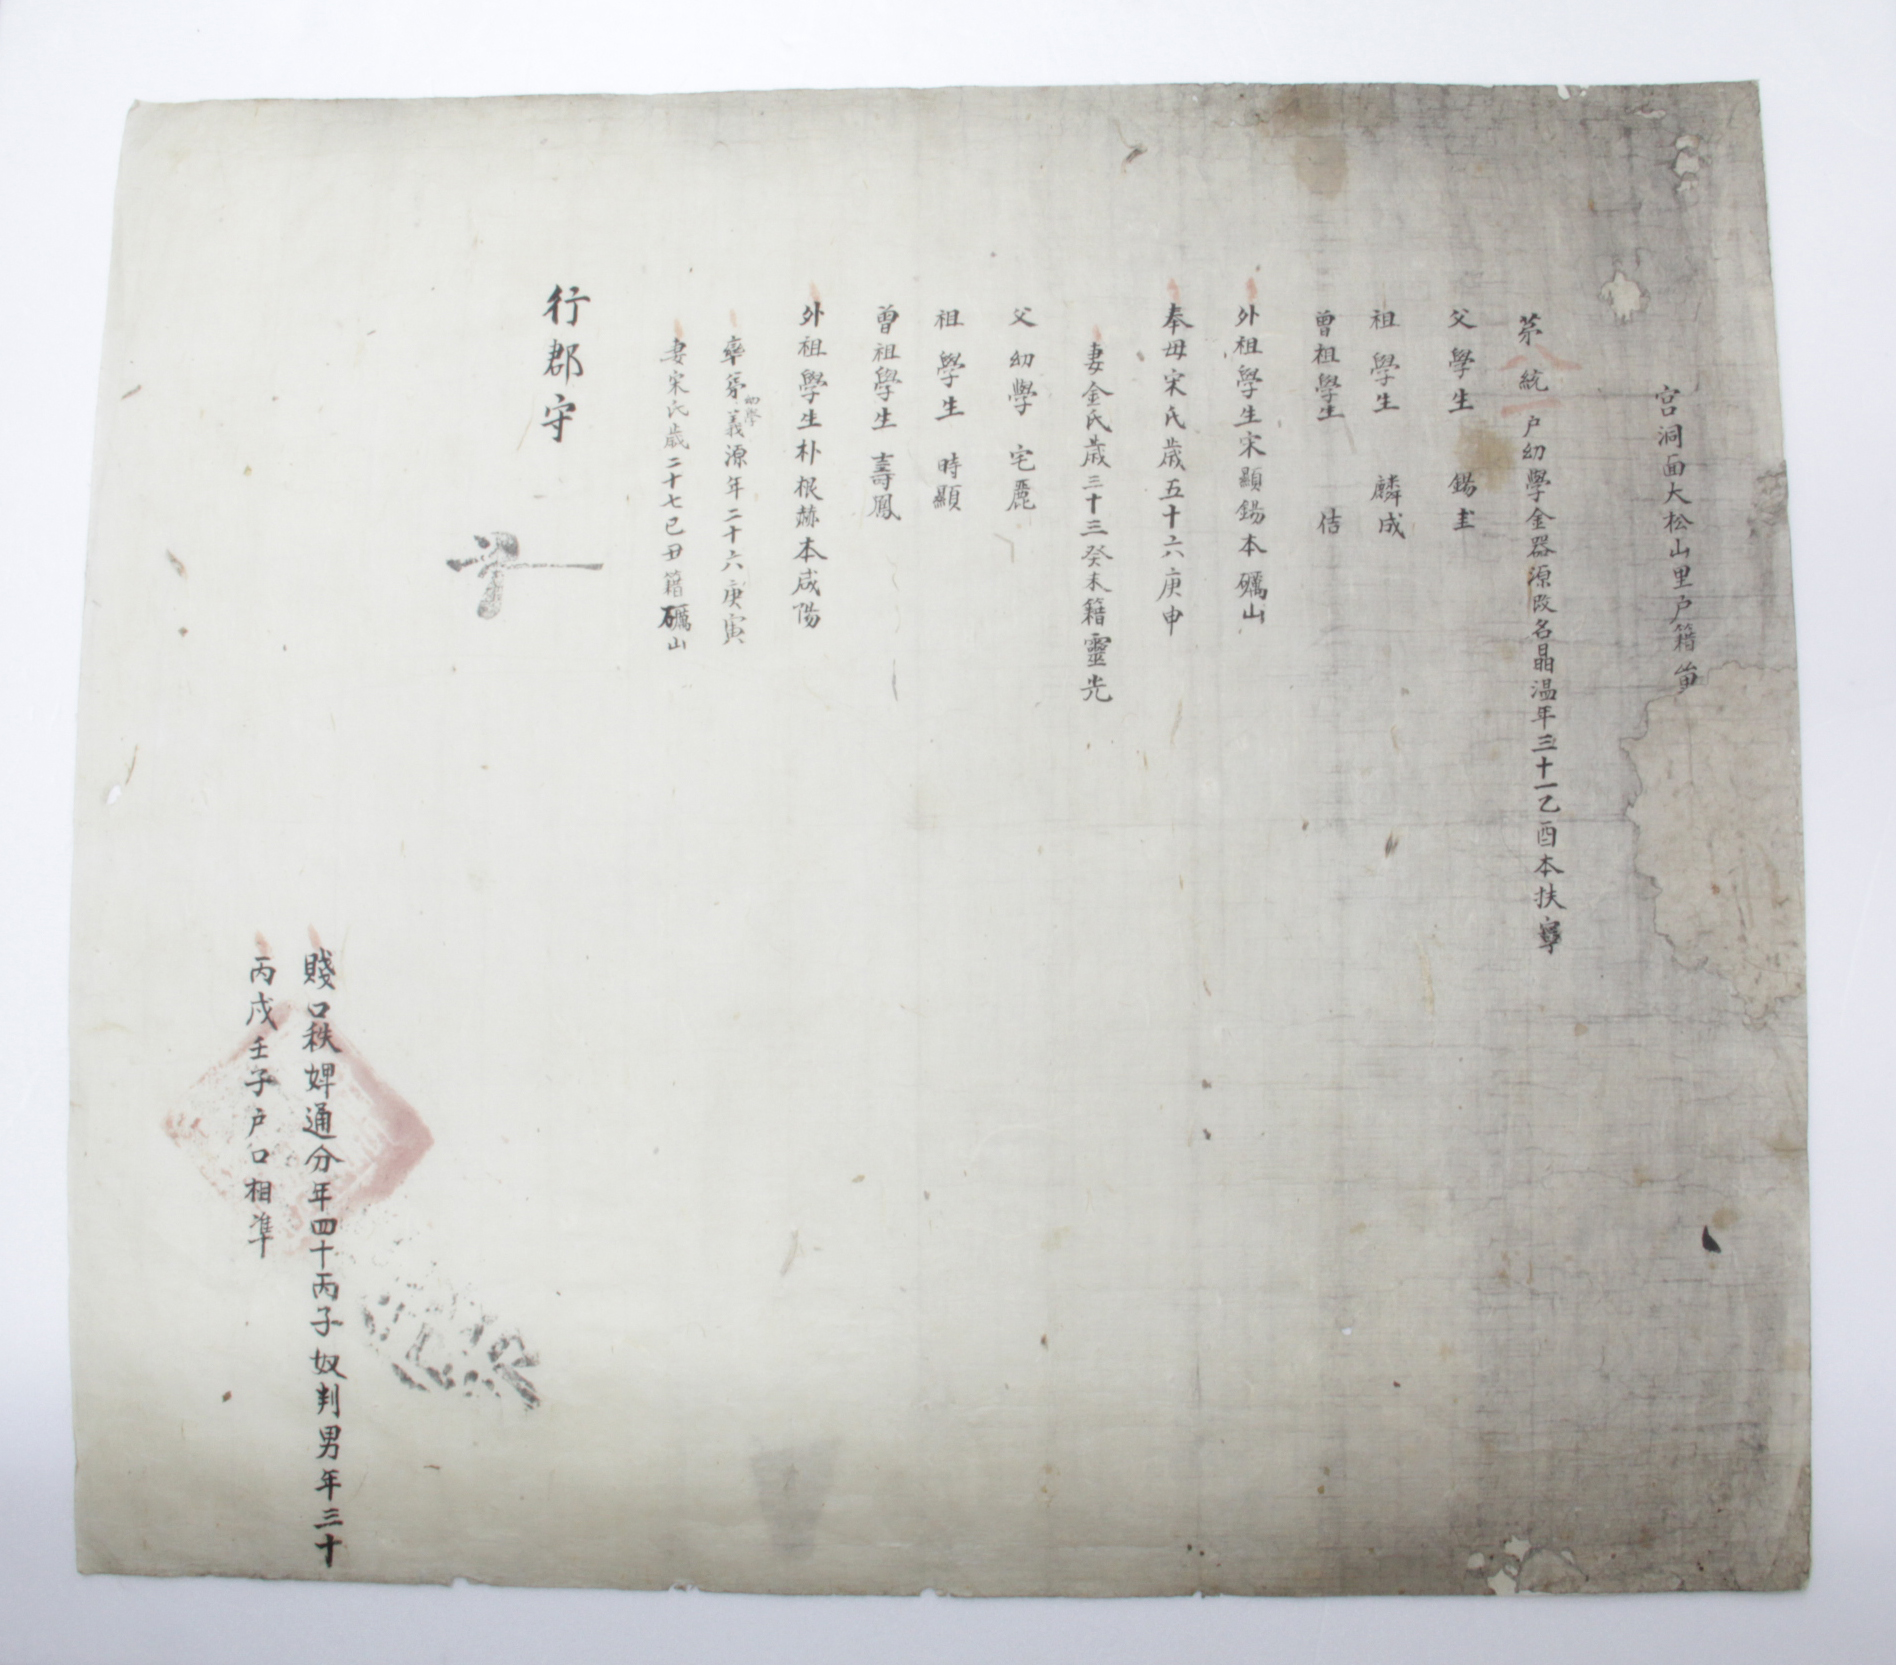 宮洞面大松山里戶籍
第八統一戶幼學金器源改名晶温年三十一乙酉本扶寧
父學生 錫圭
祖學生 麟成
曾祖學生 佶
外祖學生宋顯錫本礪山
奉母宋氏歲五十六庚申
妻金氏歲三十三癸未籍靈光
父幼學 宅麗
祖學生 時顯
曾祖學生 壽鳳
外祖學生朴根赫本咸陽
率弟幼學義源年二十六庚寅
妻宋氏歲二十七己丑籍礪山
行郡守
賤口秩婢通分年四十丙子奴判男年三十
丙戌壬子戶口相準